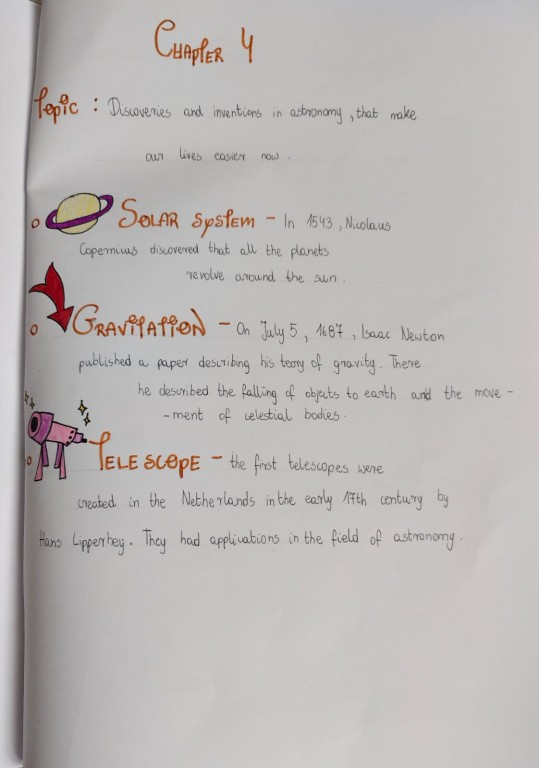 Chapter 4
Topic : Discoveries and inventions in astronomy, that make
our lives easier now.
Solar system - In 1543, Nicolaus
Copernicus discovered that all the planets
revolve around the sun.
Gravitation - On July 5, 1687, Isaac Newton
published a paper describing his teory of gravity. There
he described the falling of objects to earth and the move -
-ment of celestial bodies.
Telescope - the first telescopes were
created in the Netherlands in the early 17th century by
Hans Lipperhey. They had applications in the field of astronomy.